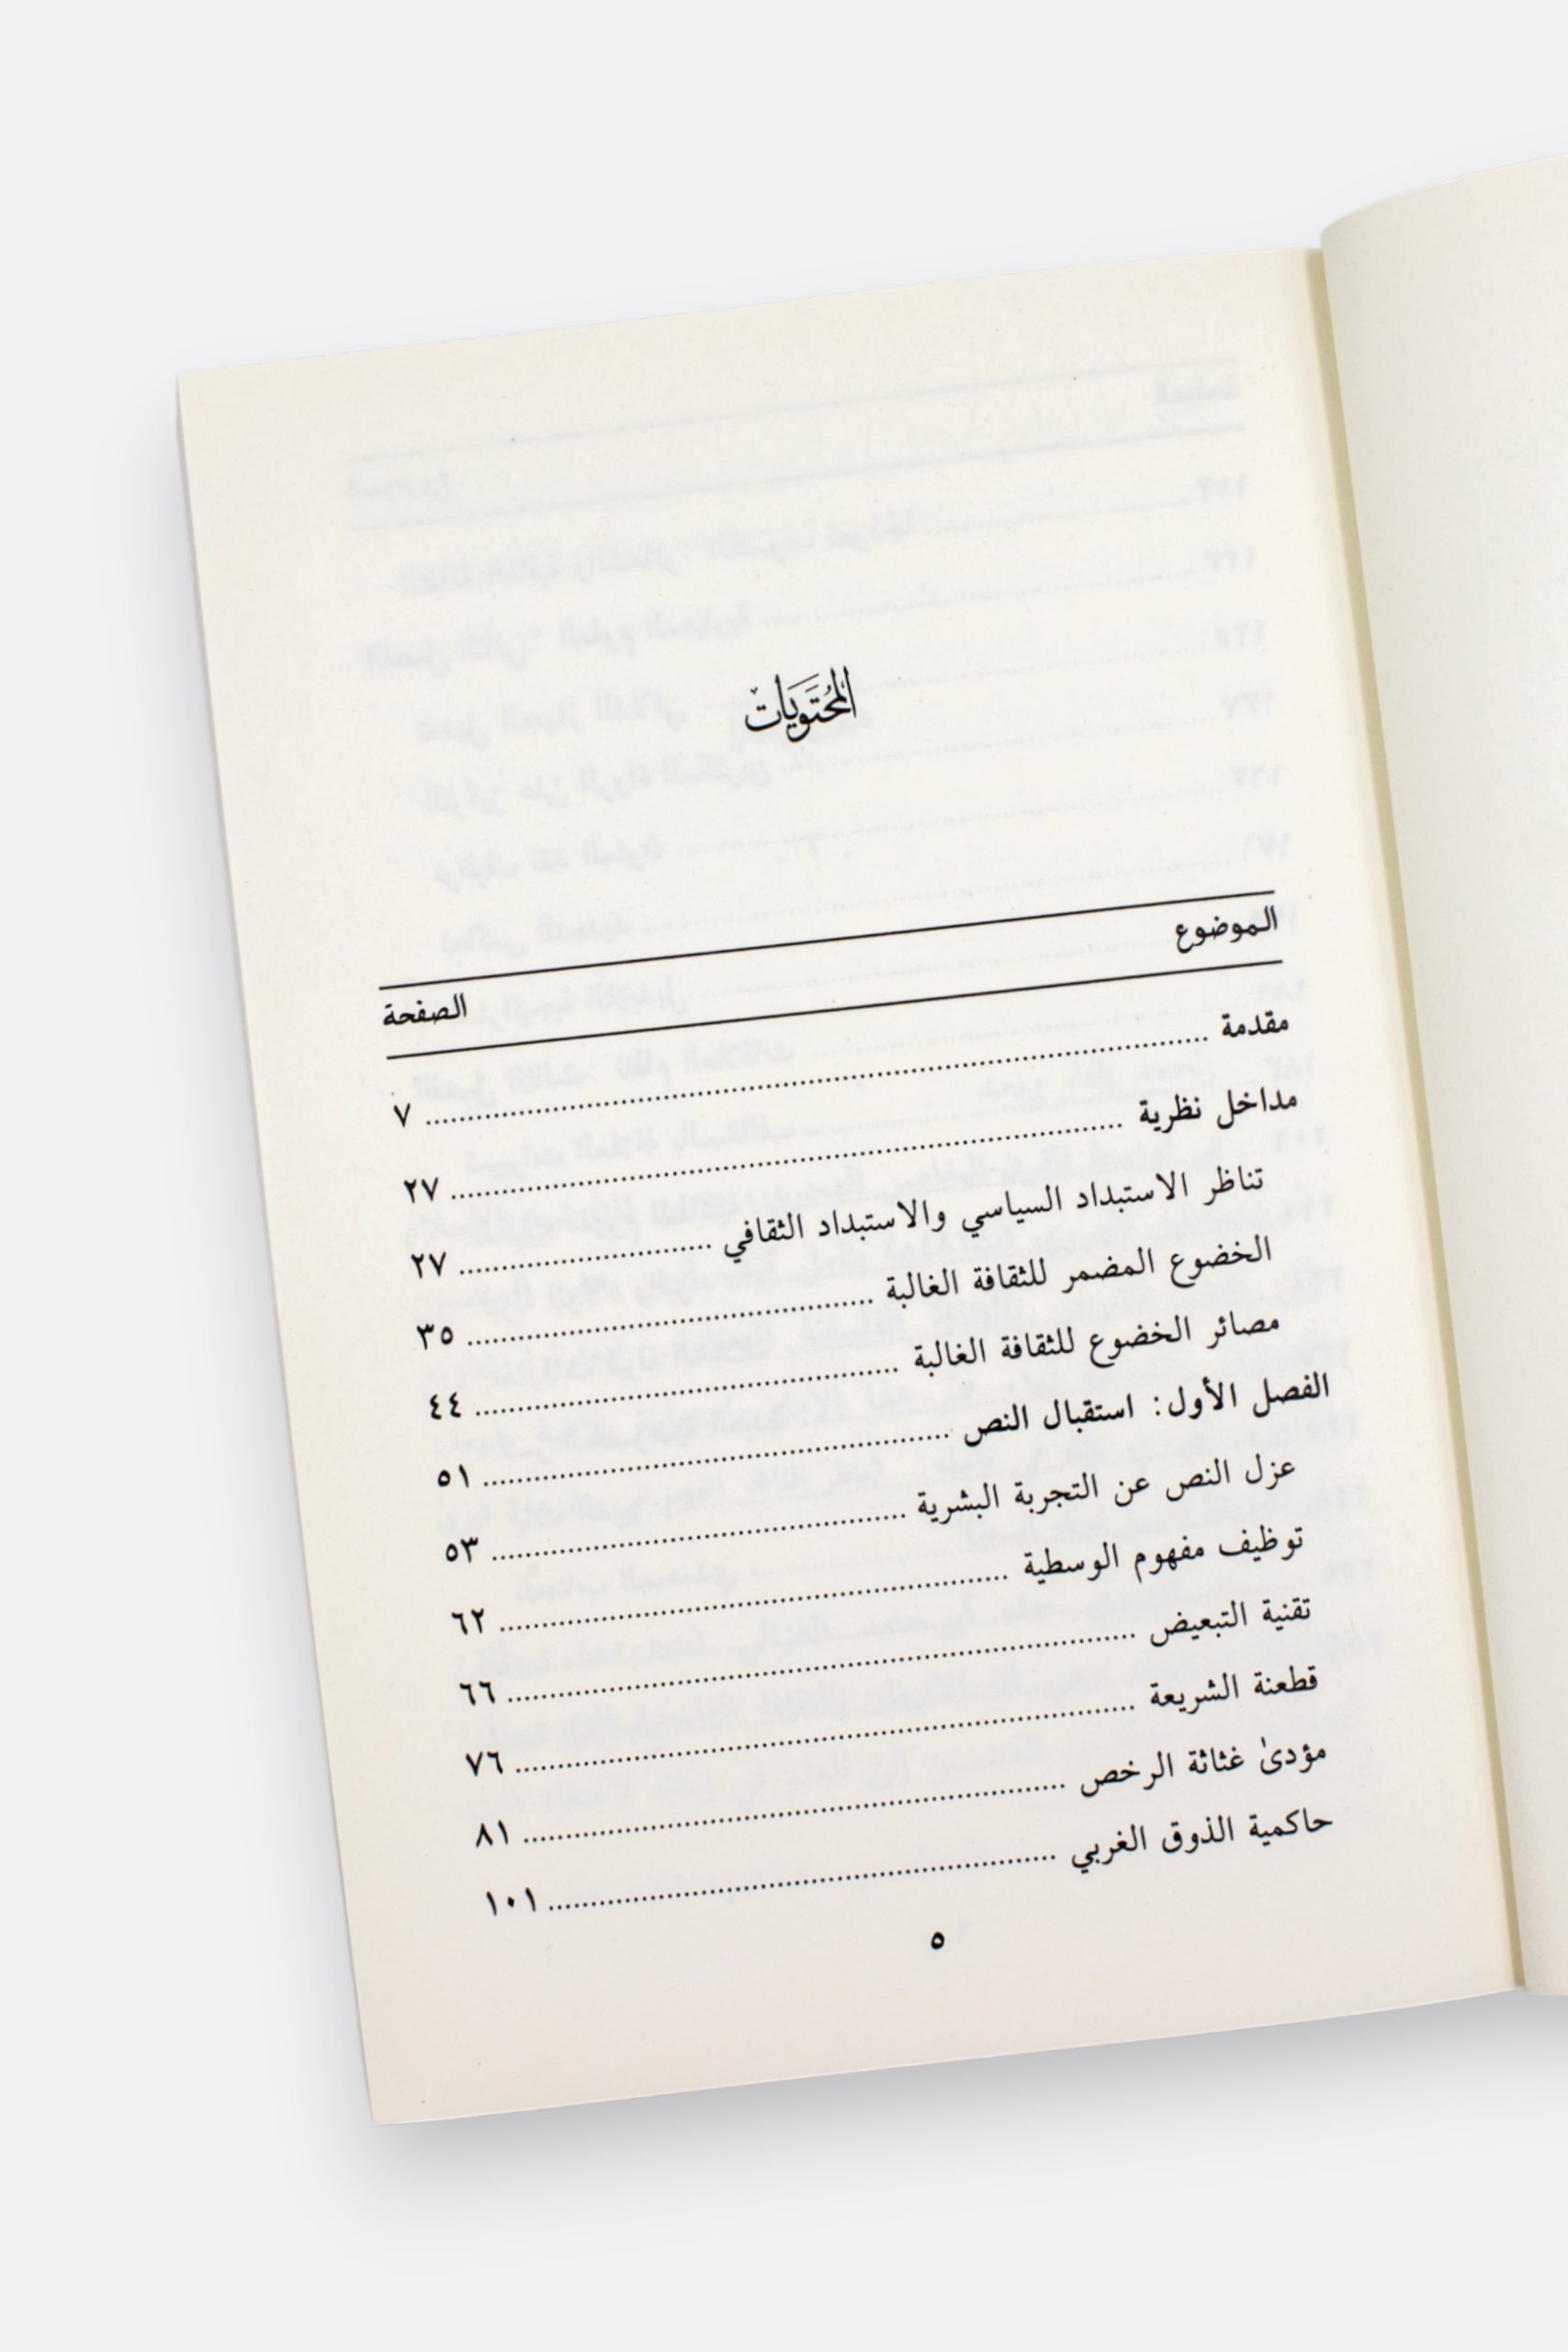 المُحتَوَيات
الموضوع الصفحة
مقدمة ................ ٧
مداخل نظرية ................ ٢٧
تناظر الاستبداد السياسي والاستبداد الثقافي ................ ٢٧
الخضوع المضمر للثقافة الغالبة ................ ٣٥
مصائر الخضوع للثقافة الغالبة ................ ٤٤
الفصل الأول: استقبال النص ................ ٥١
عزل النص عن التجربة البشرية ................ ٥٣
توظيف مفهوم الوسطية ................ ٦٢
تقنية التبعيض ................ ٦٦
قطعنة الشريعة ................ ٧٦
مؤدىٰ غثاثة الرخص ................ ٨١
حاكمية الذوق الغربي ................ ١٠١
٥